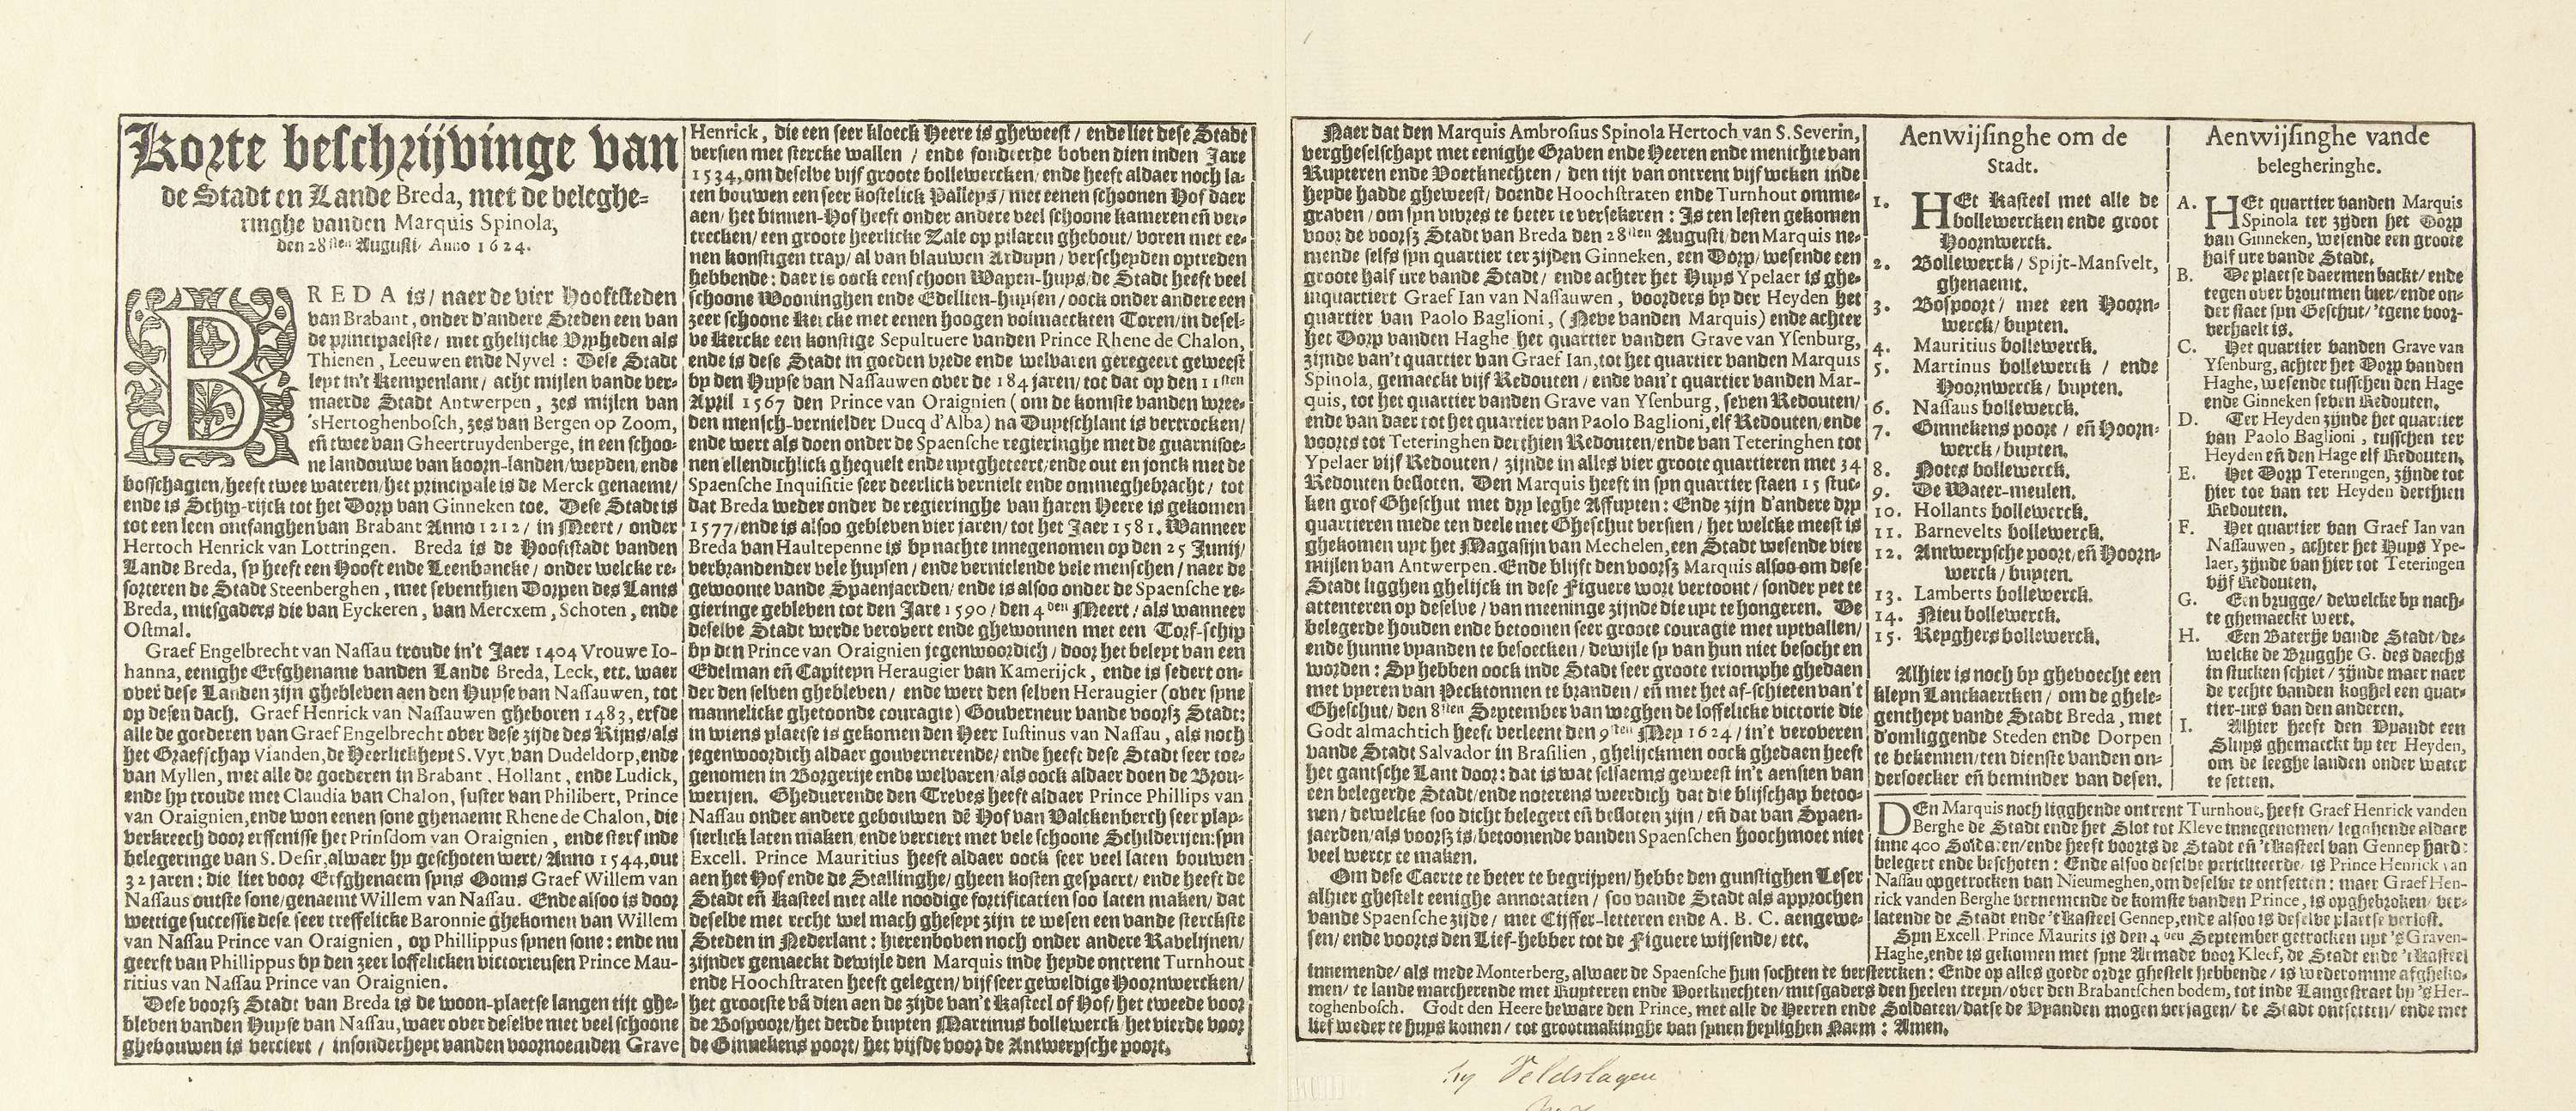 Korte beschrijvinge van
de Stadt en Lande Breda, met de beleghe-
ringhe vanden Marquis Spinola,
den 28sten Augusti, Anno 1624.
BREDA is/ naer de vier Hooftsteden
van Brabant, onder d'andere Steden een van
de principaelste/ met ghelijcke Vryheden als
Thienen, Leeuwen ende Nyvel: Dese Stadt
leyt in't Kempenlant/ acht mijlen vande ver-
maerde Stadt Antwerpen, zes mijlen van
'sHertoghenbosch, zes van Bergen op Zoom,
eñ twee van Gheertruydenberge, in een schoo-
ne landouwe van koorn-landen/weyden/ende
bosschagien/heeft twee wateren/het principale is de Merck genaemt/
ende is Schip-rijck tot het Dorp van Ginneken toe. Dese Stadt is
tot een leen ontfanghen van Brabant Anno 1212/ in Meert/ onder
Hertoch Henrick van Lottringen. Breda is de Hooftstadt vanden
Lande Breda, sy heeft een Hooft ende Leenbancke/ onder welcke re-
sorteren de Stadt Steenberghen, met seventhien Dorpen des Lants
Breda, mitsgaders die van Eyckeren, van Mercxem, Schoten, ende
Ostmal.
Graef Engelbrecht van Nassau troude in't Jaer 1404 Vrouwe Io-
hanna, eenighe Erfghename vanden Lande Breda, Leck, etc. waer
over dese Landen zijn ghebleven aen den Huyse van Nassauwen, tot
op desen dach. Graef Henrick van Nassauwen gheboren 1483, erfde
alle de goederen van Graef Engelbrecht over dese zijde des Rijns/als
het Graefschap Vianden, de Heerlickheyt S. Vyt, van Dudeldorp, ende
van Myllen, met alle de goederen in Brabant, Hollant, ende Ludick,
ende hy troude met Claudia van Chalon, suster van Philibert, Prince
van Oraignien, ende won eenen sone ghenaemt Rhene de Chalon, die
verkreech door erffenisse het Prinsdom van Oraignien, ende sterf inde
belegeringe van S. Desir, alwaer hy geschoten wert/ Anno 1544, out
32 jaren: die liet voor Erfghenaem syns Ooms Graef Willem van
Nassaus outste sone/genaemt Willem van Nassau. Ende alsoo is door
wettige successie dese seer treffelicke Baronnie ghekomen van Willem
van Nassau Prince van Oraignien, op Phillippus synen sone: ende nu
geerft van Phillippus by den zeer loffelicken victorieusen Prince Mau-
ritius van Nassau Prince van Oraignien.
Dese voorsz Stadt van Breda is de woon-plaetse langen tijt ghe-
bleven vanden Huyse van Nassau, waer over deselve met veel schoone
ghebouwen is verciert / insonderheyt vanden voornoemden Grave
Henrick, die een seer kloeck Heere is gheweest/ ende liet dese Stadt
versien met stercke wallen / ende fondeerde boven dien inden Jare
1534, om deselve vijf groote bollewercken/ ende heeft aldaer noch la-
ten bouwen een seer kostelick Palleys/ met eenen schoonen Hof daer
aen/ het binnen-Hof heeft onder andere veel schoone kameren eñ ver-
trecken/ een groote heerlicke Zale op pilaren ghebout/ voren met ee-
nen konstigen trap/ al van blauwen Arduyn/ verscheyden optreden
hebbende: daer is oock een schoon Wapen-huys/ de Stadt heeft veel
schoone Wooninghen ende Edellien-huysen/ oock onder andere een
zeer schoone Kercke met eenen hoogen volmaeckten Toren/ in desel-
ve Kercke een konstige Sepultuere vanden Prince Rhene de Chalon,
ende is dese Stadt in goeden vrede ende welvaren geregeert geweest
by den Huyse van Nassauwen over de 184 jaren/ tot dat op den 11sten
April 1567 den Prince van Oraignien (om de komste vanden wree-
den mensch-vernielder Ducq d'Alba) na Duytschlant is vertrocken/
ende wert als doen onder de Spaensche regieringhe met de guarnisoe-
nen ellendichlick ghequelt ende uytgheteert/ende out en jonck met de
Spaensche Inquisitie seer deerlick vernielt ende ommeghebracht/ tot
dat Breda weder onder de regieringhe van haren Heere is gekomen
1577/ende is alsoo gebleven vier jaren/ tot het Jaer 1581. Wanneer
Breda van Haultepenne is by nachte innegenomen op den 25 Junij/
verbrandender vele huysen/ ende vernielende vele menschen/ naer de
gewoonte vande Spaenjaerden/ ende is alsoo onder de Spaensche re-
gieringe gebleven tot den Jare 1590/ den 4den Meert/ als wanneer
deselve Stadt werde verovert ende ghewonnen met een Torf-schip
by den Prince van Oraignien jegenwoordich/ door het beleyt van een
Edelman eñ Capiteyn Heraugier van Kamerijck, ende is sedert on-
der den selven ghebleven/ ende wert den selven Heraugier (over syne
mannelicke ghetoonde couragie) Gouverneur vande voorsz Stadt:
in wiens plaetse is gekomen den Heer Iustinus van Nassau, als noch
jegenwoordich aldaer gouvernerende/ ende heeft dese Stadt seer toe-
genomen in Borgerije ende welvaren/als oock aldaer doen de Brou-
werijen. Gheduerende den Treves heeft aldaer Prince Phillips van
Nassau onder andere gebouwen dē Hof van Valckenberch seer play-
sierlick laten maken/ ende verciert met vele schoone Schilderijen: syn
Excell. Prince Mauritius heeft aldaer oock seer veel laten bouwen
aen het Hof ende de Stallinghe/ gheen kosten gespaert/ ende heeft de
Stadt eñ Kasteel met alle noodige fortificatien soo laten maken/ dat
deselve met recht wel mach gheseyt zijn te wesen een vande sterckste
Steden in Nederlant: hierenboven noch onder andere Ravelijnen/
zijnder gemaeckt dewijle den Marquis inde heyde ontrent Turnhout
ende Hoochstraten heeft gelegen/ vijf seer geweldige Hoornwercken/
het grootste vā dien aen de zijde van't Kasteel of Hof/ het tweede voor
de Bospoort/het derde buyten Martinus bollewerck/ het vierde voor
de Ginnekens poort/ het vijfde voor de Antwerpsche poort.
Naer dat den Marquis Ambrosius Spinola Hertoch van S. Severin,
vergheselschapt met eenighe Graven ende Heeren ende menichte van
Ruyteren ende Voetknechten / den tijt van ontrent vijf weken inde
heyde hadde gheweest/ doende Hoochstraten ende Turnhout omme-
graven/ om syn vivres te beter te versekeren: Is ten lesten gekomen
voor de voorsz Stadt van Breda den 28sten Augusti/ den Marquis ne-
mende selfs syn quartier ter zijden Ginneken, een Dorp/ wesende een
groote half ure vande Stadt/ ende achter het Huys Ypelaer is ghe-
inquartiert Graef Ian van Nassauwen, voorders by der Heyden het
quartier van Paolo Baglioni, (Neve vanden Marquis) ende achter
het Dorp vanden Haghe het quartier vanden Grave van Ysenburg,
zijnde van't quartier van Graef Ian, tot het quartier vanden Marquis
Spinola, gemaeckt vijf Redouten/ ende van't quartier vanden Mar-
quis, tot het quartier vanden Grave van Ysenburg, seven Redouten/
ende van daer tot het quartier van Paolo Baglioni, elf Redouten/ende
voorts tot Teteringhen derthien Redouten/ende van Teteringhen tot
Ypelaer vijf Redouten/ zijnde in alles vier groote quartieren met 34
Redouten besloten. Den Marquis heeft in syn quartier staen 15 stuc-
ken grof Gheschut met dry leghe Affuyten: Ende zijn d'andere dry
quartieren mede ten deele met Gheschut versien/ het welcke meest is
ghekomen uyt het Magasijn van Mechelen, een Stadt wesende vier
mijlen van Antwerpen. Ende blijft den voorsz Marquis alsoo om dese
Stadt ligghen ghelijck in dese Figuere wort vertoont/ sonder yet te
attenteren op deselve/ van meeninge zijnde die uyt te hongeren. De
belegerde houden ende betoonen seer groote couragie met uytvallen/
ende hunne vyanden te besoecken/ dewijle sy van hun niet besocht en
worden: Sy hebben oock inde Stadt seer groote triomphe ghedaen
met vyeren van Pecktonnen te branden/ eñ met het af-schieten van't
Gheschut/ den 8sten September van weghen de loffelicke victorie die
Godt almachtich heeft verleent den 9sten Mey 1624/ in't veroveren
vande Stadt Salvador in Brasilien, ghelijckmen oock ghedaen heeft
het gantsche Lant door: dat is wat selsaems geweest in't aensien van
een belegerde Stadt/ende noterens weerdich dat die blijschap betoo-
nen/ dewelcke soo dicht belegert eñ besloten zijn/ eñ dat van Spaen-
jaerden/als voorsz is/betoonende vanden Spaenschen hoochmoet niet
veel wercx te maken.
Om dese Caerte te beter te begrijpen/ hebbe den gunstighen Leser
alhier ghestelt eenighe annotatien / soo vande Stadt als approchen
vande Spaensche zijde / met Cijffer-letteren ende A. B. C. aengewe-
sen/ ende voorts den Lief-hebber tot de Figuere wijsende/ etc.
Aenwijsinghe om de
Stadt.
1. HEt Kasteel met alle de
bollewercken ende groot
Hoornwerck.
2. Bollewerck/ Spijt-Mansvelt,
ghenaemt.
3. Bospoort/ met een Hoorn-
werck/ buyten.
4. Mauritius bollewerck.
5. Martinus bollewerck / ende
Hoornwerck/ buyten.
6. Nassaus bollewerck.
7. Ginnekens poort / eñ Hoorn-
werck/ buyten.
8. Notes bollewerck.
9. De Water-meulen.
10. Hollants bollewerck.
11. Barnevelts bollewerck.
12. Antwerpsche poort/ eñ Hoorn-
werck/ buyten.
13. Lamberts bollewerck.
14. Nieu bollewerck.
15. Reyghers bollewerck.
Alhier is noch by ghevoecht een
kleyn Lantkaertken/ om de ghele-
gentheyt vande Stadt Breda, met
d'omliggende Steden ende Dorpen
te bekennen/ten dienste vanden on-
dersoecker eñ beminder van desen.
Aenwijsinghe vande
belegheringhe.
A. HEt quartier vanden Marquis
Spinola ter zijden het Dorp
van Ginneken, wesende een groote
half ure vande Stadt.
B. De plaetse daermen backt/ ende
tegen over broutmen bier/ende on-
der staet syn Geschut/ 'tgene voor-
verhaelt is.
C. Het quartier vanden Grave van
Ysenburg, achter het Dorp vanden
Haghe, wesende tusschen den Hage
ende Ginneken seven Redouten.
D. Ter Heyden zijnde het quartier
van Paolo Baglioni, tusschen ter
Heyden eñ den Hage elf Redouten.
E. Het Dorp Teteringen, zijnde tot
hier toe van ter Heyden derthien
Redouten.
F. Het quartier van Graef Ian van
Nassauwen, achter het Huys Ype-
laer, zijnde van hier tot Teteringen
vijf Redouten.
G. Een brugge/ dewelcke by nach-
te ghemaeckt wert.
H. Een Baterije vande Stadt/ de-
welcke de Brugghe G. des daechs
in stucken schiet/ zijnde maer naer
de rechte vanden koghel een quar-
tier-urs van den anderen.
I. Alhier heeft den Vyandt een
Sluys ghemaeckt by ter Heyden,
om de leeghe landen onder water
te setten.
DEn Marquis noch ligghende ontrent Turnhout, heeft Graef Henrick vanden
Berghe de Stadt ende het Slot tot Kleve innegenomen/ legghende aldaer
inne 400 Soldaten/ende heeft voorts de Stadt eñ 't Kasteel van Gennep hard
belegert ende beschoten: Ende alsoo deselve periclitteerde/ is Prince Henrick van
Nassau opgetrocken van Nieumeghen, om deselve te ontsetten: maer Graef Hen-
rick vanden Berghe vernemende de komste vanden Prince, is opghebroken/ ver-
latende de Stadt ende 't Kasteel Gennep, ende alsoo is deselve plaetse verlost.
Syn Excell. Prince Maurits is den 4den September getrocken uyt 's Graven-
Haghe, ende is gekomen met syne Armade voor Kleef, de Stadt ende 't Kasteel
innemende/ als mede Monterberg, alwaer de Spaensche hun sochten te verstercken: Ende op alles goede ordre ghestelt hebbende/ is wederomme afgheko-
men/ te lande marcherende met Ruyteren ende Voetknechten/ mitsgaders den heelen treyn/ over den Brabantschen bodem, tot inde Langestraet by 's Her-
toghenbosch. Godt den Heere beware den Prince, met alle de Heeren ende Soldaten/ datse de Vyanden mogen verjagen/ de Stadt ontsetten/ ende met
lief weder te huys komen/ tot grootmakinghe van synen heylighen Naem: Amen.
by Veldslagen